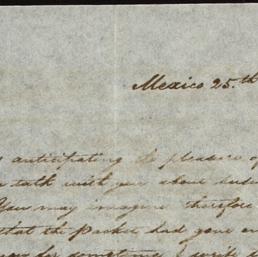 Mexico 25.th
anticipating the pleasure of
talk with you about
You may imagine therefore
that the Packet had gone
for sometime I write